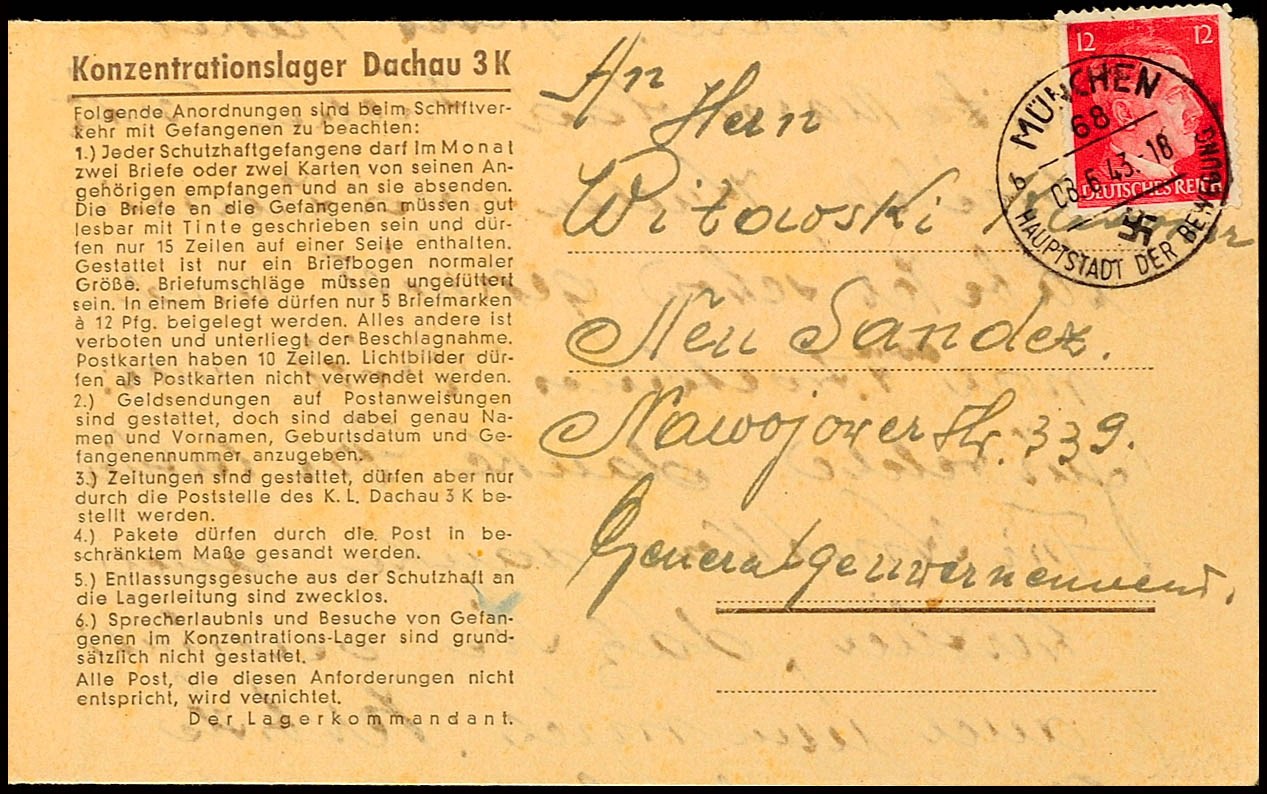 Konzentrationslager Dachau 3 K
Folgende Anordnungen sind beim Schriftver-
kehr mit Gefangenen zu beachten:
1.) Jeder Schutzhaftgefangene darf im Monat
zwei Briefe oder zwei Karten von seinen An-
gehörigen empfangen und an sie absenden.
Die Briefe an die Gefangenen müssen gut
lesbar mit Tinte geschrieben sein und dür-
fen nur 15 Zeilen auf einer Seite enthalten.
Gestattet ist nur ein Briefbogen normaler
Größe. Briefumschläge müssen ungefüttert
sein. In einem Briefe dürfen nur 5 Briefmarken
à 12 Pfg. beigelegt werden. Alles andere ist
verboten und unterliegt der Beschlagnahme.
Postkarten haben 10 Zeilen. Lichtbilder dür-
fen als Postkarten nicht verwendet werden.
2.) Geldsendungen auf Postanweisungen
sind gestattet, doch sind dabei genau Na-
men und Vornamen, Geburtsdatum und Ge-
fangenennummer anzugeben.
3.) Zeitungen sind gestattet, dürfen aber nur
durch die Poststelle des K. L. Dachau 3 K be-
stellt werden.
4.) Pakete dürfen durch die Post in be-
schränktem Maße gesandt werden.
5.) Entlassungsgesuche aus der Schutzhaft an
die Lagerleitung sind zwecklos.
6.) Sprecherlaubnis und Besuche von Gefan-
genen im Konzentrations-Lager sind grund-
sätzlich nicht gestattet.
Alle Post, die diesen Anforderungen nicht
entspricht, wird vernichtet.
Der Lagerkommandant.
An
Hern
Witowski
Neu Sandez.
Nawojower Str. 339.
Generalgeuwernemend.
12 12
DEUTSCHES REICH
MÜNCHEN
68
08.6.43.-18
b
HAUPTSTADT DER BEWEGUNG